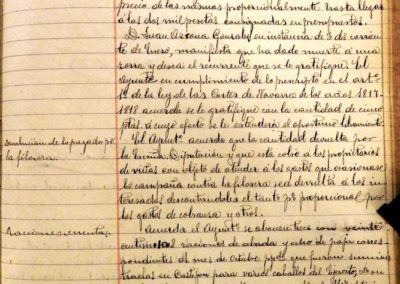 precio de las mismas proporcionalmente hasta llegar
á las dos mil pesetas consignadas en presupuestos.
D. Juan Azcona Gonzalez en instancia de 3 del corrien
te Enero, manifiesta que ha dado muerte á una
zorra y desea el recurrente que se le gratifique. El
Ayunto en cumplimiento de lo prescripto en el arto
1º de la ley de las Cortes de Navarra de los años 1817-
1818 acuerda se le gratifique con la cantidad de cinco
ptas. á cuyo efecto se le extenderá el oportuno libramiento.
Devolucion de lo pagado pr
la filoxera.
El Ayunto acuerda que la cantidad devuelta por
la Excma. Diputación y que esta cobró á los propietarios
de viñas con objeto de atender á los gastos que ocasionase
la campaña contra la filoxera sea devuelta á los in
teresados descontandoles el tanto p% proporcional por
los gastos de cobranza y otros.
Raciones
Acuerda el Ayunto se abonen con veinte
centimos raciones de cebada y ocho de paja corres-
pondientes al mes de Octubre ppdo que fueron suminis
tradas en para varios caballos del Ejército